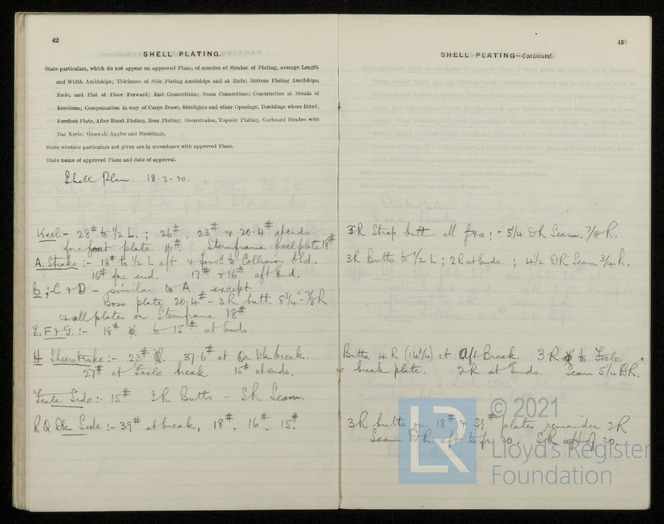 42
SHELL PLATING.
State particulars, which do not appear on approved Plans, of number of Strakes of Plating, average Length
and Width Amidships; Thickness of Side Plating Amidships and at Ends; Bottom Plating Amidships,
Ends, and Flat of Floor Forward; End Connections; Seam Connections; Construction at Breaks of
Erections; Compensation in way of Cargo Doors, Sidelights and other Openings; Doublings where fitted;
Forefoot Plate, After Hood Plating, Boss Plating; Sheerstrakes, Topside Plating, Garboard Strakes with
Bar Keels; Gunwale Angles and Mouldings.
State whether particulars not given are in accordance with approved Plans.
State name of approved Plans and date of approval.
Shell Plan. 18-2-20.
Keel - 28# to 1/2 L.; 26#, 23# & 20.4# at ends
forefoot plate Sternframe keelplate 18#
A. Strake :- 18# to 1/2 L aft & Collision bhd.
16# fore end. 17# & 16# aft end.
B; - C & D - similar to A except
Boss plate 20.4# - 3R butt. - 7/8 R
& all plates on Sternframe 18#
E. F & G :- 18# to 15# at Ends
H Sheerstrake :- 37.6# at Dk break.
27# at Focle break 15# at ends.
Focle Side :- 15# 2R Butts - SR Seam.
R Q Dk Side :- 39# at break, 18#, 16#, 15#
43
SHELL PLATING—Continued.
3R Strap butt all f & a; - 5/4 DR Seam. 7/8 R.
3R Butts to 1/2 L; 2R at Ends. ; 4 1/2 DR Seam 3/4 R.
Butts 4 R at Aft Break. 3 R to Focle
break plate. 2R at Ends. Seam
3R butts on 18# & 39# plates remainder 2R
Seam DR aft to fr 20. SR aft of 20.
© 2021
LR
Lloyd's Register
Foundation